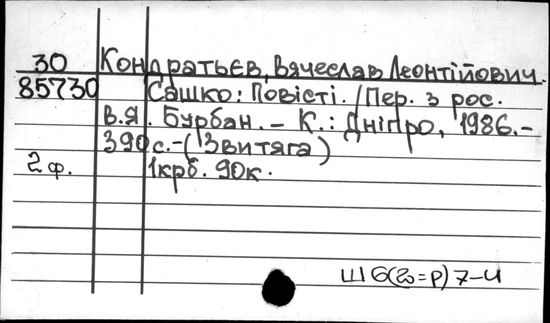 30 Кондратьєв, Вячеслав Леонтійович.
85730 Сашко: Повісті. /Пер. з рос.
В.Я. Бурбан. – К.: Дніпро, 1986.–
390 с.–(Звитяга)
2ф. 1крб. 90к.
Ш6(2=Р)7–4